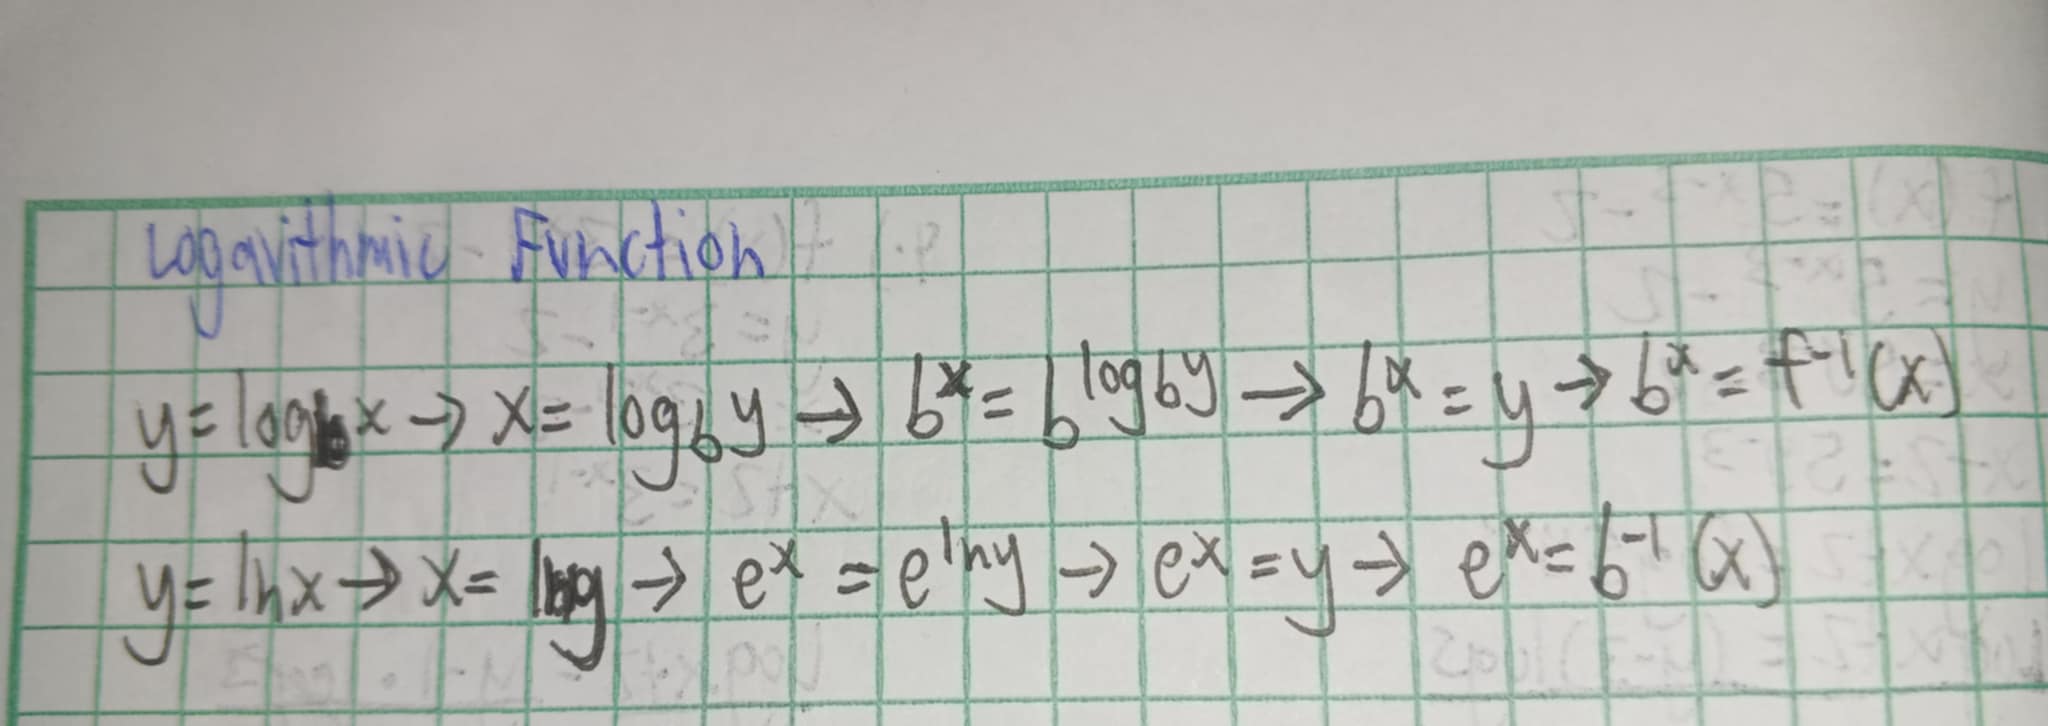 Logarithmic Function
y=log_b x → x=log_b y → b^x = b^(log_b y) → b^x = y → b^x = f^-1(x)
y=lnx → x= → e^x = e^(lny) → e^x = y → e^x = b^-1(x)